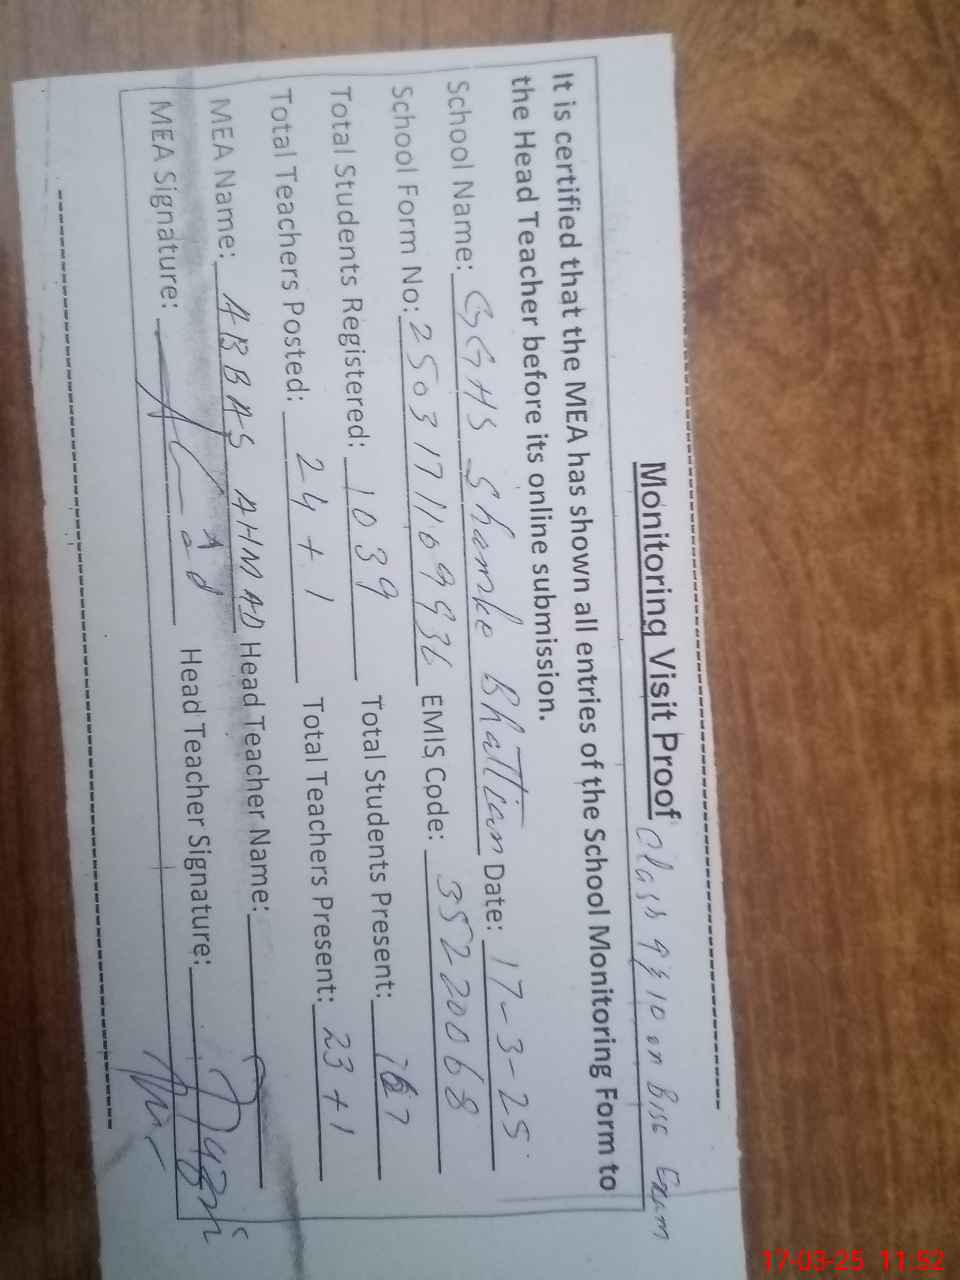 Monitoring Visit Proof Class 9 & 10 on BISE Exam
It is certified that the MEA has shown all entries of the School Monitoring Form to
the Head Teacher before its online submission.
School Name: GGHS Shamke Bhattian Date: 17-3-25
School Form No: EMIS Code: 35220068
Total Students Registered: 1039 Total Students Present: 767
Total Teachers Posted: 24 + 1 Total Teachers Present: 23 + 1
MEA Name: ABBAS AHMAD Head Teacher Name:
MEA Signature: Head Teacher Signature:
17-03-25 11:52